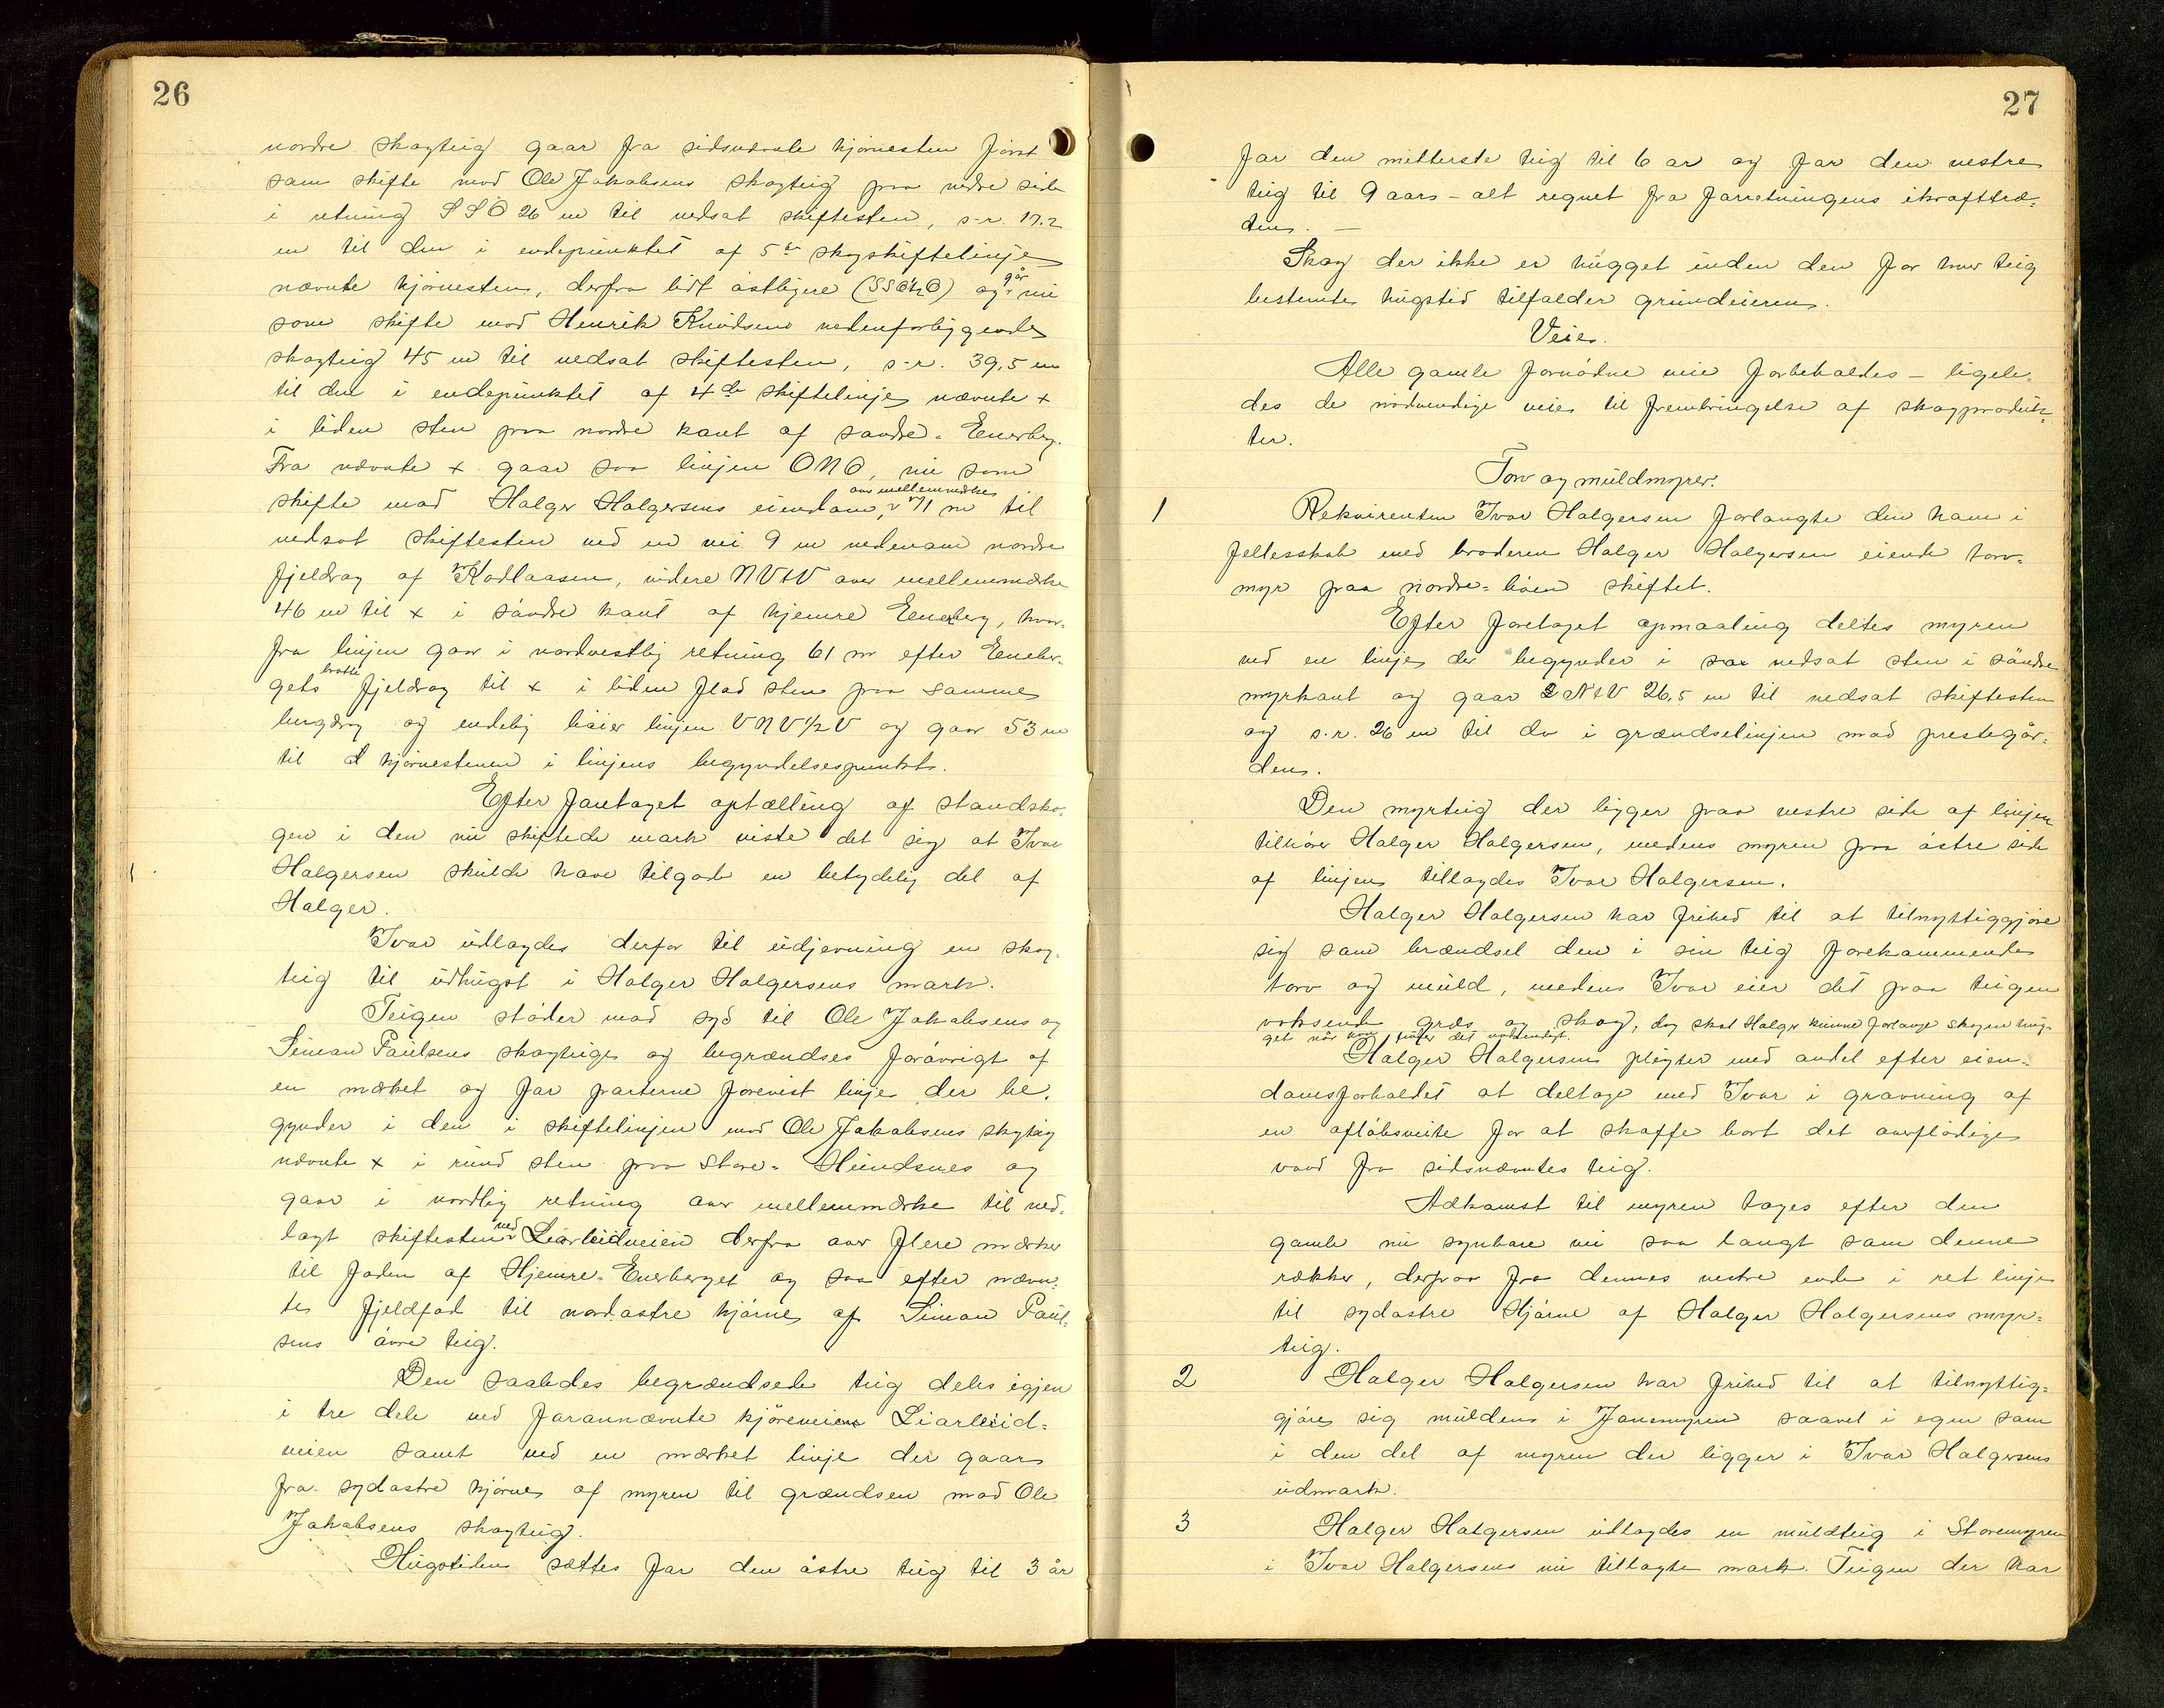 26
nordre skogteig gaar fra sidsnævnte hjørnesten först
som skifte mod Ole Jakobsens skogteig paa nedre side
i retning SSÖ 26 m til nedsat skiftesten, s-r. 17.2
m til den i endepunktet af 5te skogskiftelinje
nævnte hjørnesten, derfra lidt østligere (SSÖ½Ö) og går nu
som skifte mod Henrik Knudsens nedenforliggende
skogteig 45 m til nedsat skiftesten, s-r. 39,5 m
til det i endepunktet af 4de skiftelinje nævnte x
i liden sten paa nordre kant af søndre-Enerberg.
Fra nævnte x gaar saa linjen ONO, nu som
skifte mod Holger Holgersens eiendom, over mellemmærke 71 m til
nedsat skiftesten ved en vei 9 m nedenom nordre
fjeldrag af Kodlaasen, videre NVtV over mellemmærke
46 m til x i søndre kant af hjemre Enerberg, hvor-
fra linjen gaar i nordvestlig retning 61 m efter Enerber-
gets bratte fjeldrag til x i liden flad sten paa samme
bergdrag og endelig bøier linjen VNV½V og gaar 53 m
til hjørnestenen i linjens begyndelsespunkt.
Efter foretaget optælling af standsko-
gen i den nu skiftede mark viste det sig at Ivar
Holgersen skulde have tilgode en betydelig del af
Holger.
Ivar udlagdes derfor til udjevning en skog-
teig til udhugst i Holger Holgersens mark.
Teigen støder mod syd til Ole Jakobsens og
Simon Paulsens skogteige og begrændses forøvrigt af
en mærket og for parterne forevist linje der be-
gynder i den i skiftelinjen mod Ole Jakobsens skogteig
nævnte x i rund sten paa Store-Hundsnes og
gaar i nordlig retning over mellemmærke til ned-
lagt skiftesten ved Liarleidveien derfra over flere mærker
til foden af Hjemre-Enerberget og saa efter nævn-
te fjeldfod til nordøstre hjørne af Simon Paul-
sens øvre teig.
Den saaledes begrændsede teig deles igjen
i tre dele ved førannævnte kjøreveien Liarleid-
veien samt ved en mærket linje der gaar
fra sydøstre hjørne af myren til grændsen mod Ole
Jakobsens skogteig.
Hugstiden sættes for den østre teig til 3 år
27
for den mitterste teig til 6 ar og for den vestre
teig til 9 aars – alt regnet fra forretningens ikrafttræ-
den. –
Skog der ikke er hugget inden den for hver teig
bestemte hugstid tilfalder grundeieren.
Veie.
Alle gamle fornødne veie forbeholdes – ligele-
des de nødvendige veier til frembringelse af skogproduk-
ter.
Torv og muldmyrer.
1 Rekvirenten Ivar Holgersen forlangte den ham i
fellesskab med broderen Holger Holgersen eiende torv-
myr paa nordre-bøen skiftet.
Efter foretaget opmaaling deltes myren
ved en linje der begynder i nedsat sten i søndre
myrkant og gaar NtV 26,5 m til nedsat skiftesten
og s.r. 26 m til do i grændselinjen mod prestegår-
den.
Den myrteig der ligger paa vestre side af linjen
tilhører Holger Holgersen, medens myren paa østre side
af linjen tillagdes Ivar Holgersen.
Holger Holgersen har frihed til at tilnyttiggjøre
sig som brændsel den i sin teig forekommende
torv og muld, medens Ivar eier det paa teigen
voksende græs og skog, dog skal Holger kunne forlange skogen hug-
get når han finder det nødvendigt.
Holger Holgersen pligter med andel efter eien-
domsforholdet at deltage med Ivar i gravning af
en afløbsveite for at skaffe bort det overflødige
vand fra sidsnævntes teig.
Adkomst til myren tages efter den
gamle nu synbare vei saa langt som denne
rækker, derpaa fra dennes vestre ende i ret linje
til sydøstre hjørne af Holger Holgersens myr-
teig.
2 Holger Holgersen har frihed til at tilnyttig-
gjøre sig mulden i Janemyren saavel i egen som
i den del af myren der ligger i Ivar Holgersens
udmark.
3 Holger Holgersen udlagdes en muldteig i Storemyren
i Ivar Holgersens nu tillagte mark. Teigen der har